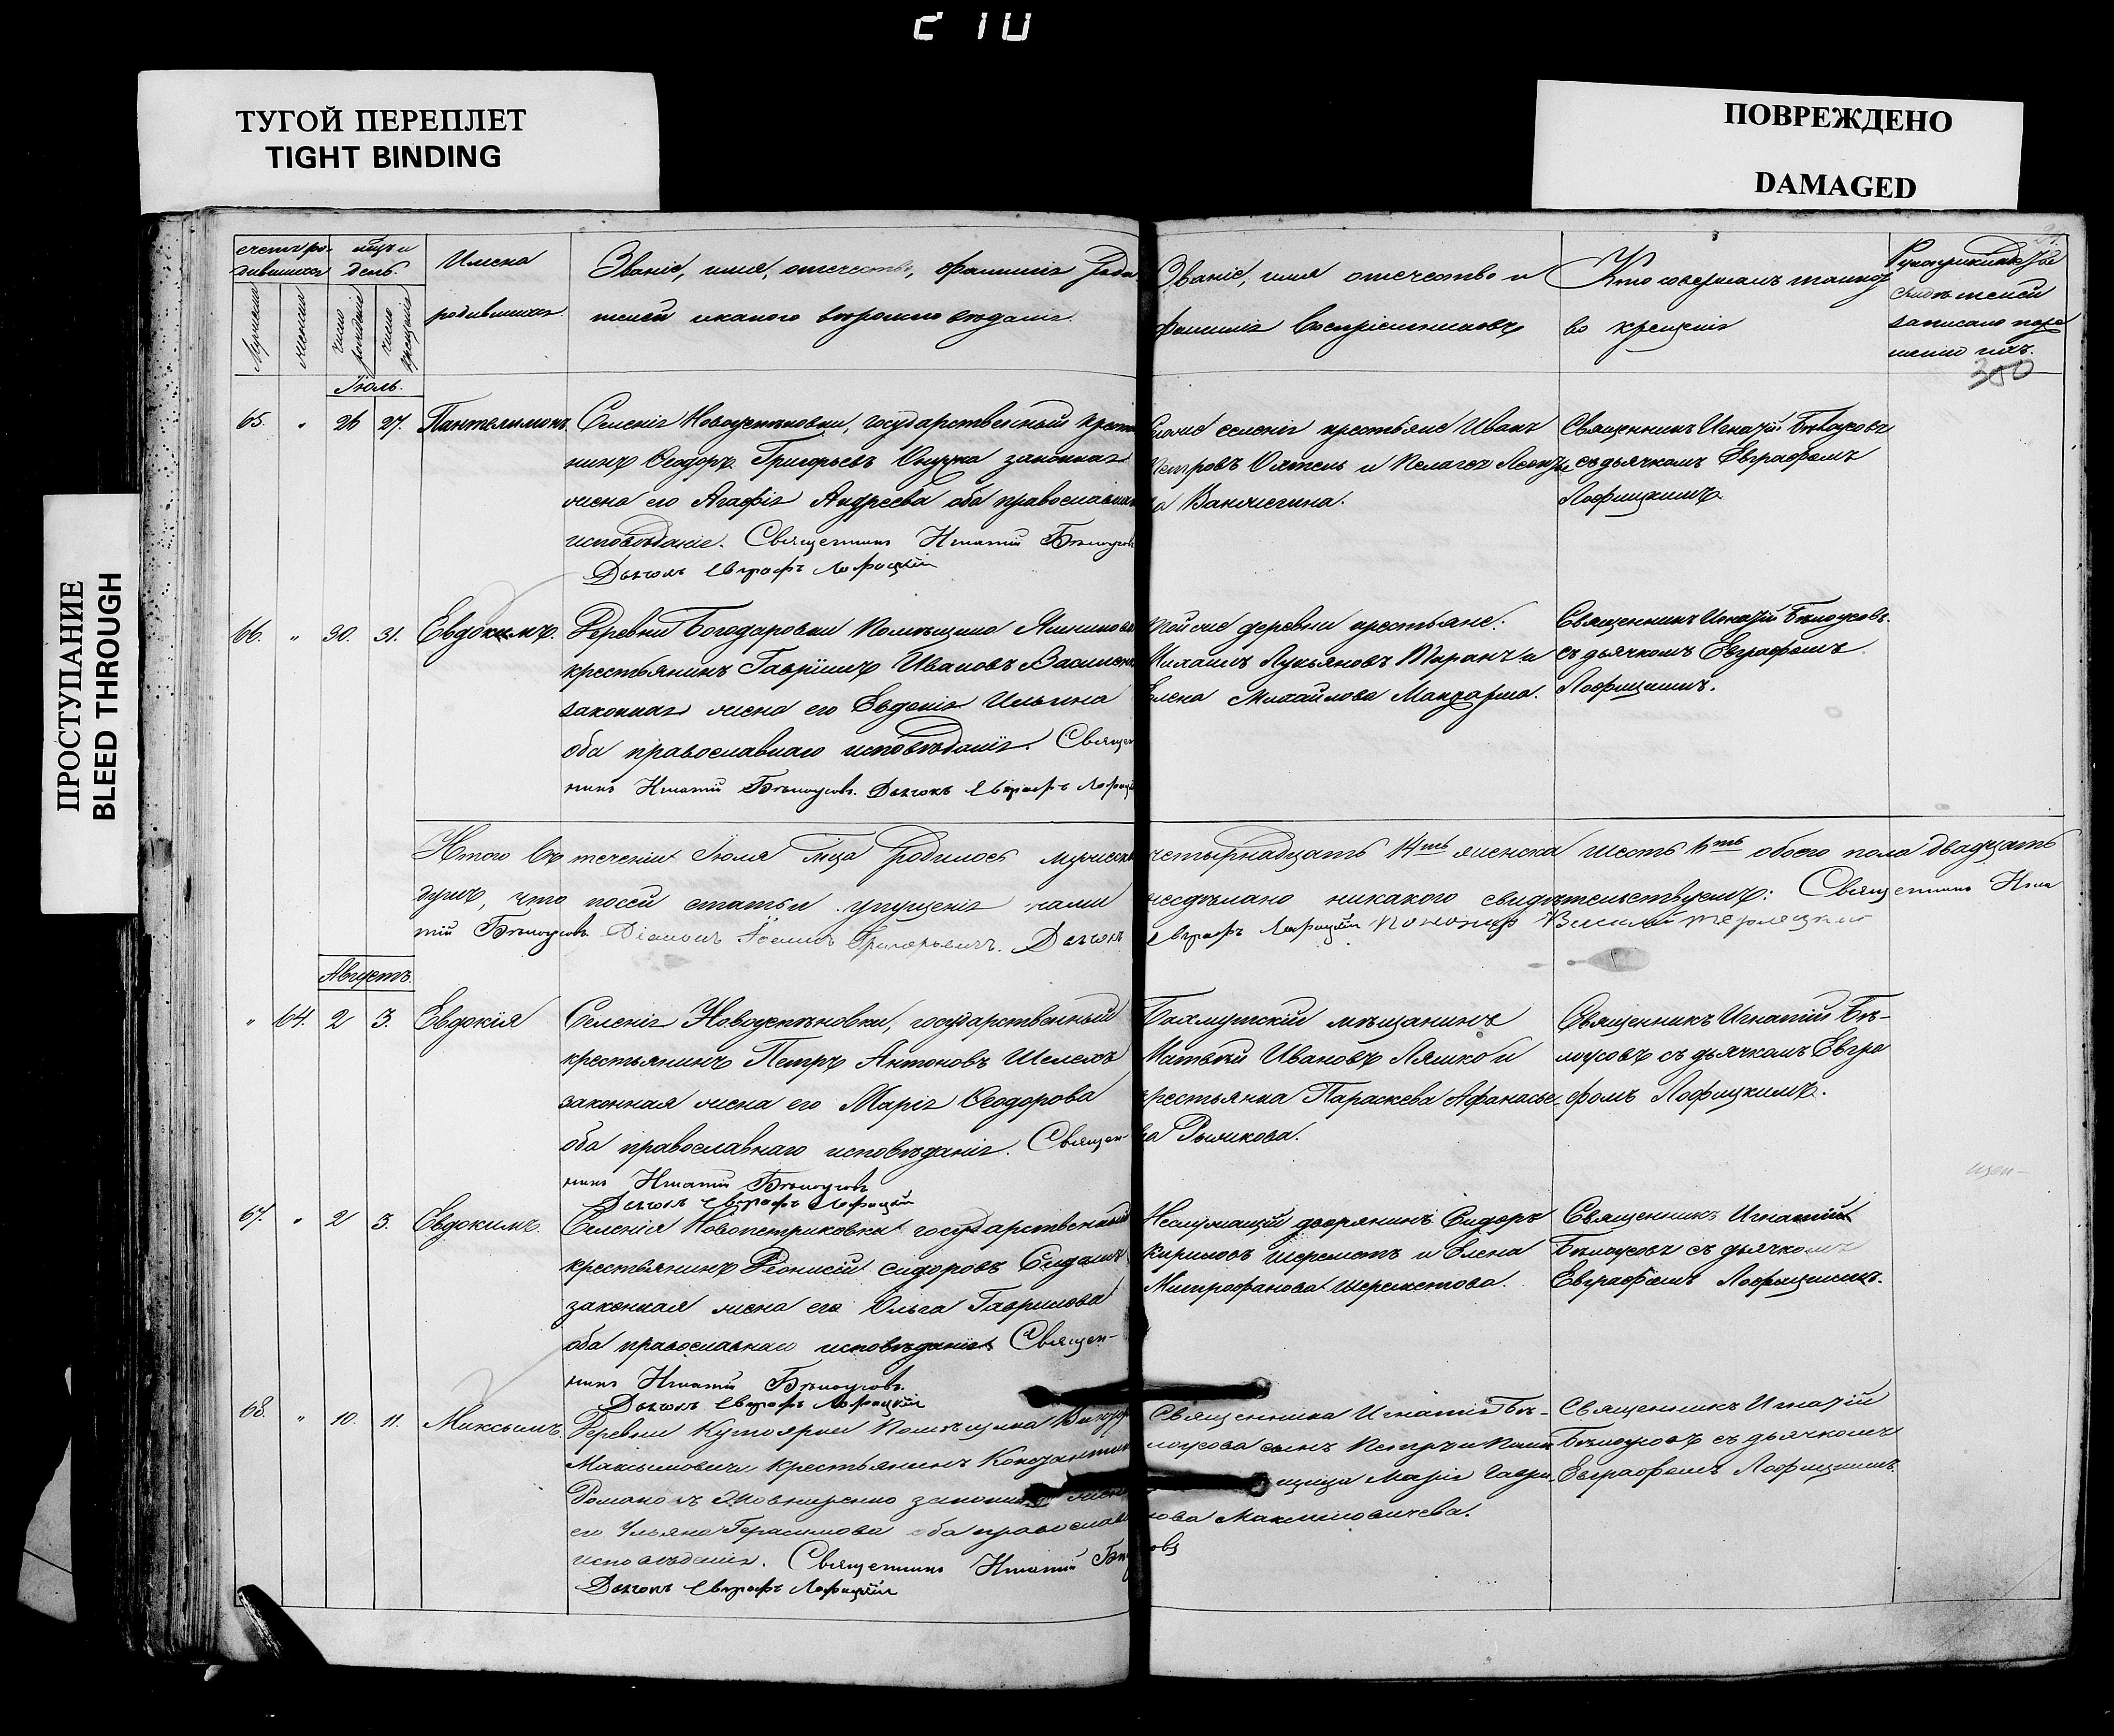 210
ТУГОЙ ПЕРЕПЛЕТ
TIGHT BINDING
ПОВРЕЖДЕНО
DAMAGED
ПРОСТУПАНИЕ
BLEED THROUGH
счетъ ро- мцъ и
дившихся день.
Имена
родившихся.
Мужеска
женска
число рожденія
число крещенія
Званіе, имя, отечество, фамилія роди
телей и какого вѣроисповѣданія.
Званіе, имя отечество и
фамилія Воспріемниковъ
Кто совершалъ таинст
во крещенія
Рукоприкладство
свидѣтелей
записано по же
ланію ихъ.
350
Іюль.
65. " 26 27. Пантелимонъ Селенія Новоуспѣновки, государственный крестья
нинъ Феодоръ Григорьевъ законная
жена его Агафія Андреева оба православнаго
исповѣданіе. Священникъ Игнатій Бѣлоусовъ
Дьячокъ Евграфъ Лофицкій
крестьяне Иванъ
Петровъ и Пелагея Леонтье
ва
Священникъ Игнатій Бѣлоусовъ
съ дьячкомъ Евграфомъ
Лофицкимъ.
66. " 30. 31. Евдокимъ. Деревни Богодаровки Помѣщика
крестьянинъ Гавріилъ Ивановъ
законная жена его Евдокія Ильина
оба православнаго исповѣданія. Священ
никъ Игнатій Бѣлоусовъ. Дьячокъ Евграфъ Лофицкій
Той же деревни крестьяне:
Михаилъ Лукьяновъ Таранъ и
Елена Михайлова
Священникъ Игнатій Бѣлоусовъ.
съ дьячкомъ Евграфомъ
Лофицкимъ.
Итого въ теченіи Іюля мца родилось мужеска четырнадцать 14ть женска шесть 6ть обоего пола двадцать
душъ, что по сей статьи упущенія нами несдѣлано никакого свидѣтельствуемъ: Священникъ Игна
тій Бѣлоусовъ Діаконъ Іоаннъ Григорьевъ. Дьячокъ Евграфъ Лофицкій Пономарь Василій
Августъ.
" 64. 2 3. Евдокія Селенія Новоуспѣновки, государственный
крестьянинъ Петръ Антоновъ Шелехъ
законная жена его Марія Феодорова
оба православнаго исповѣданія. Священ-
никъ Игнатій Бѣлоусовъ
Дьячокъ Евграфъ Лофицкій
Бахмутскій мѣщанинъ
Матвѣй Ивановъ Ляшко и
крестьянка Параскева Афанасье-
ва Рыжкова.
Священникъ Игнатій Бѣ-
лоусовъ съ дьячкомъ Евгра
фомъ Лофицкимъ.
67. " 2 3. Евдокимъ. Селенія Новопетриковки государственный
крестьянинъ Діонисій Сидоровъ
законная жена его Ольга Гаврилова
оба православнаго исповѣданія Священ-
никъ Игнатій Бѣлоусовъ.
Дьячокъ Евграфъ Лофицкій
Неслужащій дворянинъ Сидоръ
Кириловъ Шереметъ и Елена
Митрофанова Шереметова.
Священникъ Игнатій
Бѣлоусовъ съ дьячкомъ
Евграфомъ Лофицкимъ.
68. " 10. 11. Максымъ. Деревни Помѣщика
Максимовича крестьянинъ Константинъ
Романовъ законная жена
его Ульяна Герасимова оба православнаго
исповѣданія. Священникъ Игнатій Бѣлоусовъ
Дьячокъ Евграфъ Лофицкій
Священника Игнатія Бѣ-
лоусова сынъ Петръ и Помѣ
щица Марія Гаври
лова Максимовичева.
Священникъ Игнатій
Бѣлоусовъ съ дьячкомъ
Евграфомъ Лофицкимъ.